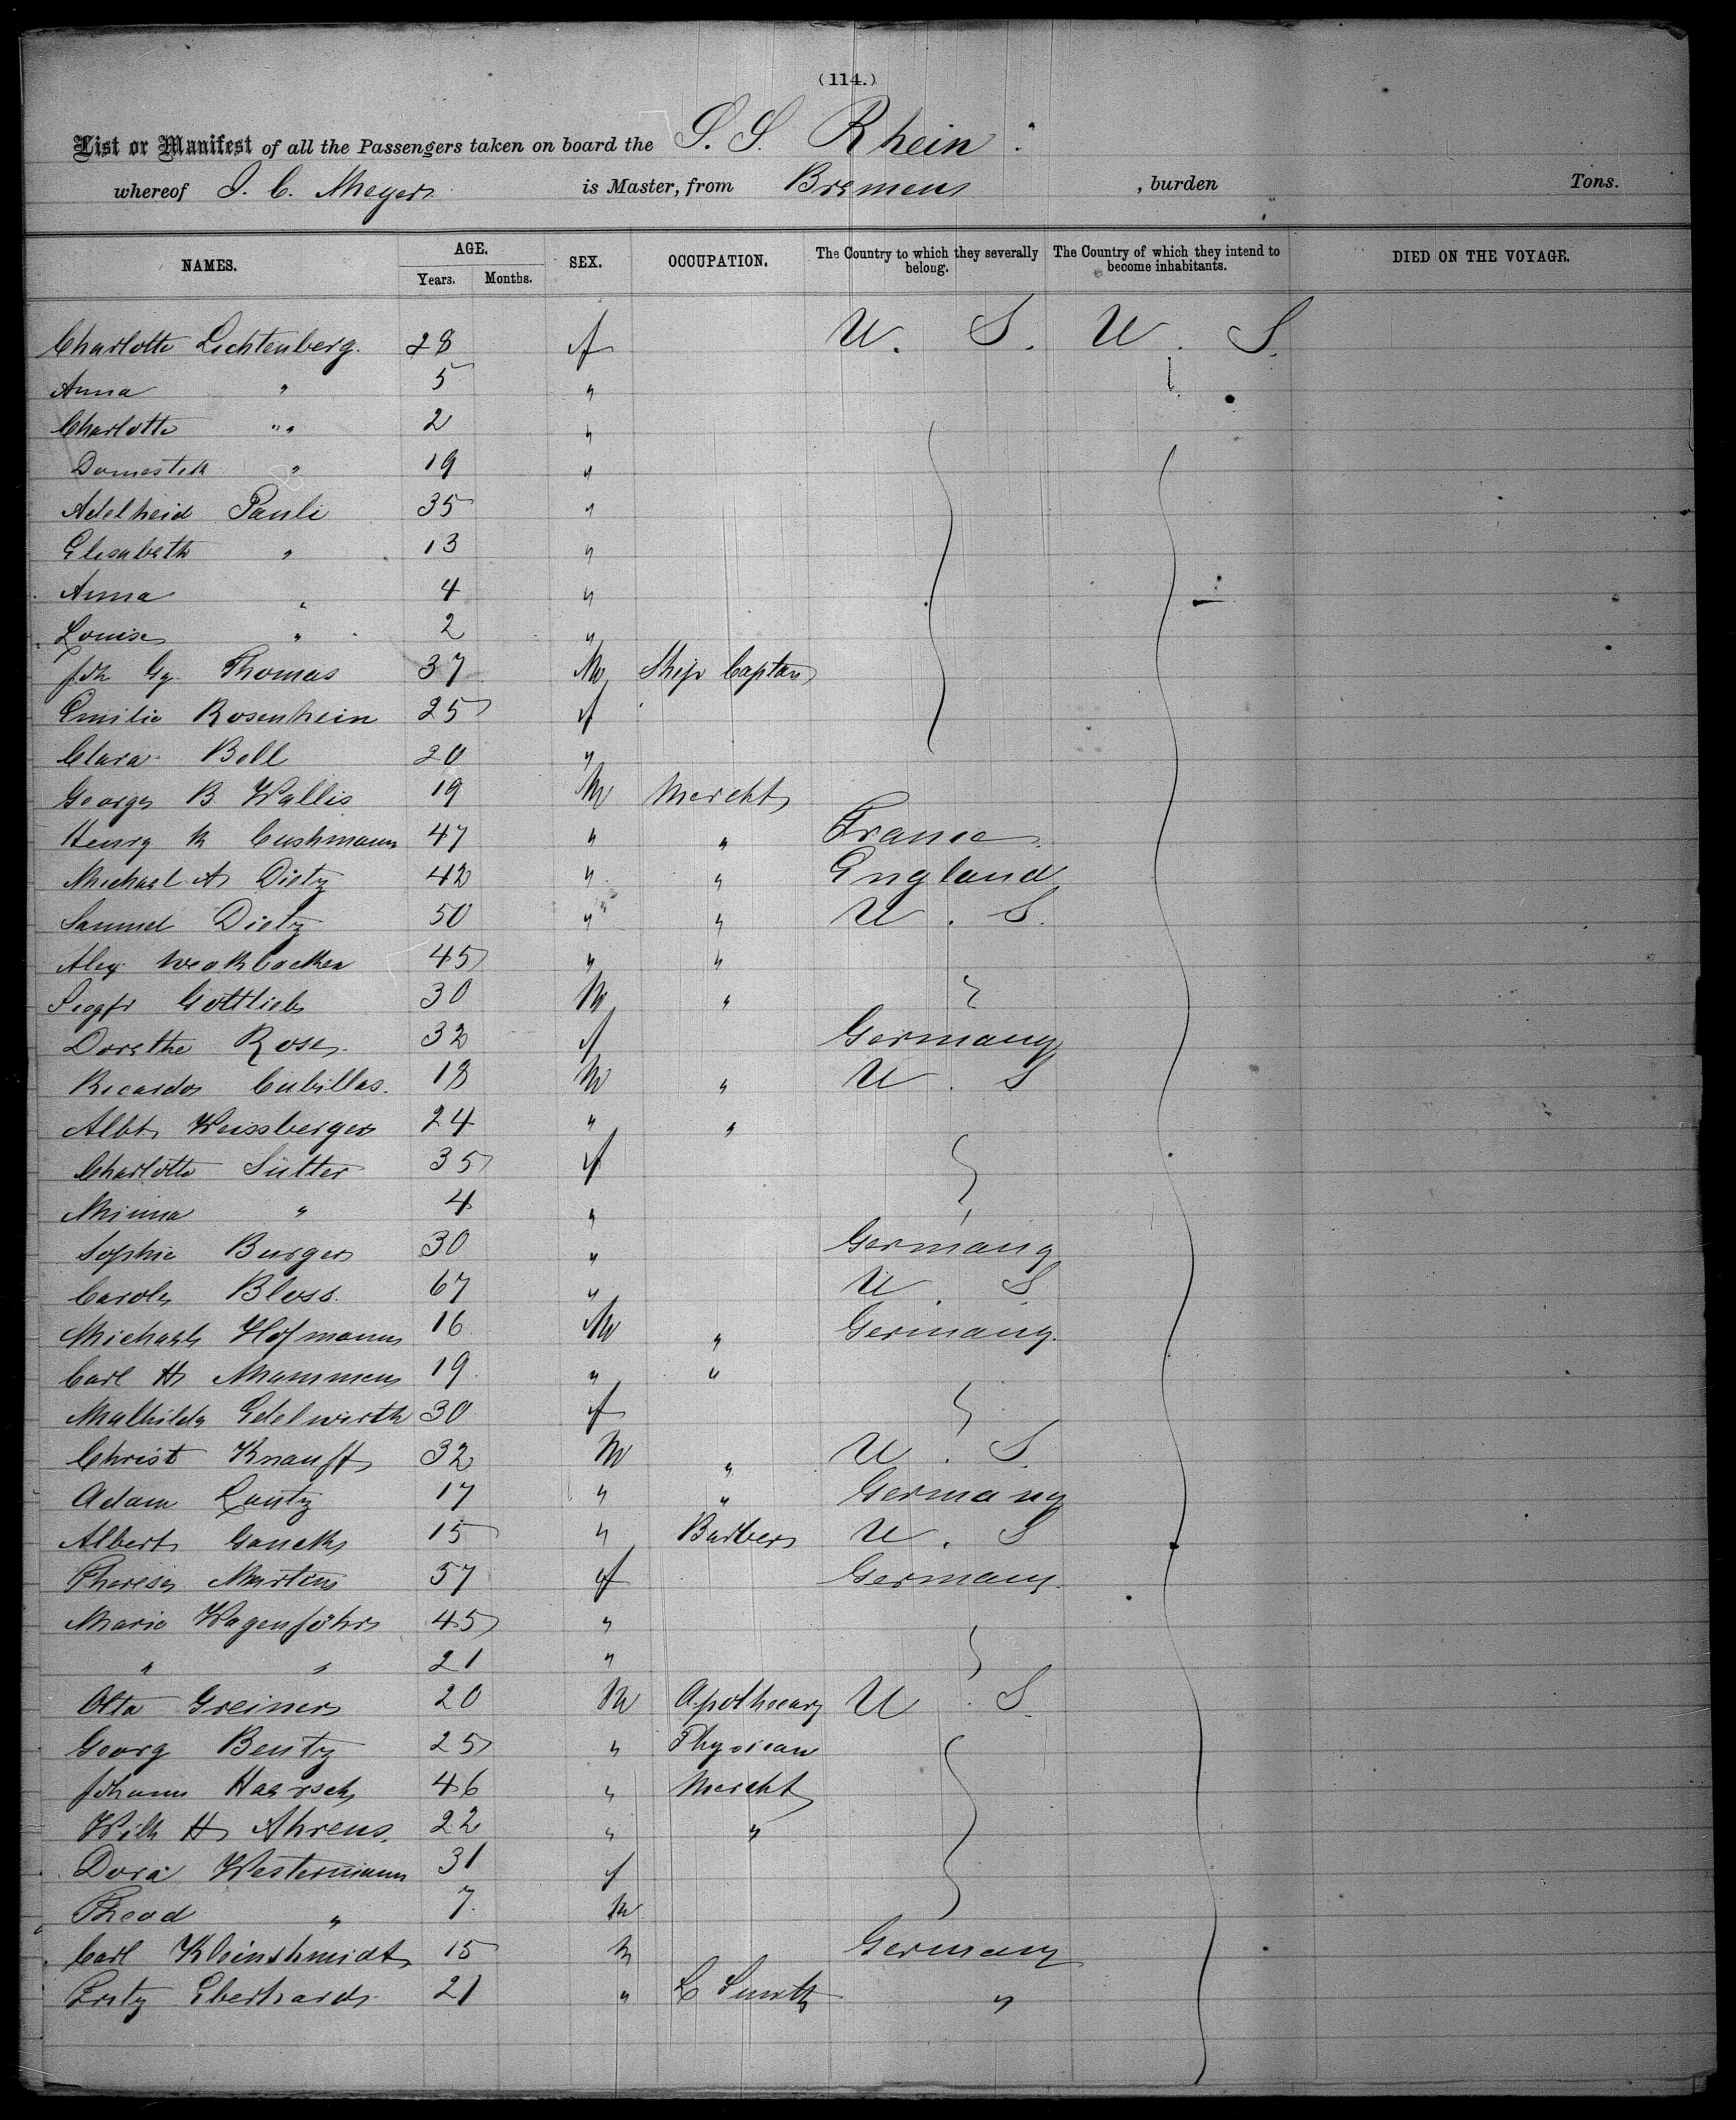 (114.)
List or Manifest of all the Passengers taken on board the S. S. Rhein
whereof J. C. Meyer is Master, from Bremen , burden Tons.
NAMES. AGE. Years. Months. SEX. OCCUPATION. The Country to which they severally belong. The Country of which they intend to become inhabitants. DIED ON THE VOYAGE.
Charlotte Lichtenberg. 28 f U. S. U. S.
Anna " 5 "
Charlotte " 2 "
Domestik " 19 "
Adelheid Pauli 35 "
Elisabeth " 13 "
Anna " 4 "
Louise " 2 "
Joh Gg. Thomas 37 M Ship Captan
Emilie Rosenhein 25 f
Clara Bell 20 "
George B Wallis 19 M Mercht
Henry K Cushmann 47 " " France
Michael A Dietz 42 " " England
Samuel Dietz 50 " " U. S.
Alex 45 " "
Siegfr Gottlieb 30 M "
Dorethe Rose 32 f Germany
Ricardo Cubillas. 18 M " U. S
Albt Weissberger 24 " "
Charlotte Sutter 35 f
Minna " 4 "
Sophie Burger 30 " Germany
Carole Bloss. 67 " U. S
Michael Hofmann 16 M " Germany.
Carl H Mammen 19 " "
Mathilde Edelwirth 30 f
Christ Knauff 32 M " U. S.
Adam Lautz 17 " " Germany
Albert 15 " Barber U. S
Therese Martin 57 f Germany.
Marie Wagenföhr 45 "
" " 21 "
Otto Greiner 20 M Apothecary U. S.
Georg Bentz 25 " Physican
Johann 46 " Mercht
Wilh H Ahrens. 22 " "
Dora Westermann 31 f
Theod " 7. M
Carl Kleinshmidt 15 M Germany
Fritz Eberhardt 21 " L Smith "